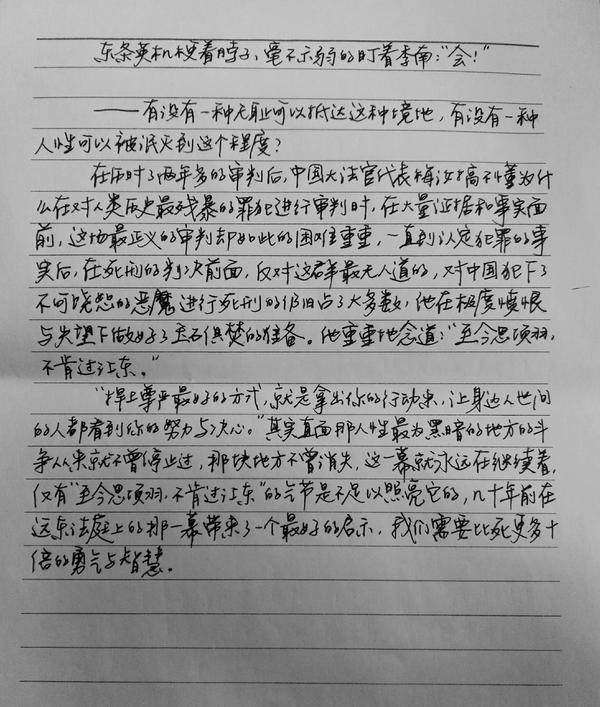 东条英机梗着脖子、毫不示弱的盯着季南:“会!”
——有没有一种无耻可以抵达这种境地,有没有一种
人性可以被泯灭到这个程度?
在历时了两年多的审判后,中国大法官代表梅汝璈搞不懂为什
么在对人类历史最残暴的罪犯进行审判时,在大量证据和事实面
前,这场最正义的审判却如此的困难重重,一直到认定犯罪的事
实后,在死刑的判决前面,反对这群最无人道的,对中国犯下了
不可饶恕的恶魔进行死刑的仍旧占了大多数,他在极度愤恨
与失望下做好了玉石俱焚的准备。他重重地念道:“至今思项羽,
不肯过江东。”
“捍卫尊严最好的方式,就是拿出你的行动来,让身边人世间
的人都看到你的努力与决心。”其实直面那人性最为黑暗的地方的斗
争从来就不曾停止过,那块地方不曾消失,这一幕就永远在继续着,
仅有“至今思项羽,不肯过江东”的气节是不足以照亮它的,几十年前在
远东法庭上的那一幕带来了一个最好的启示,我们需要比死更多十
倍的勇气与智慧。